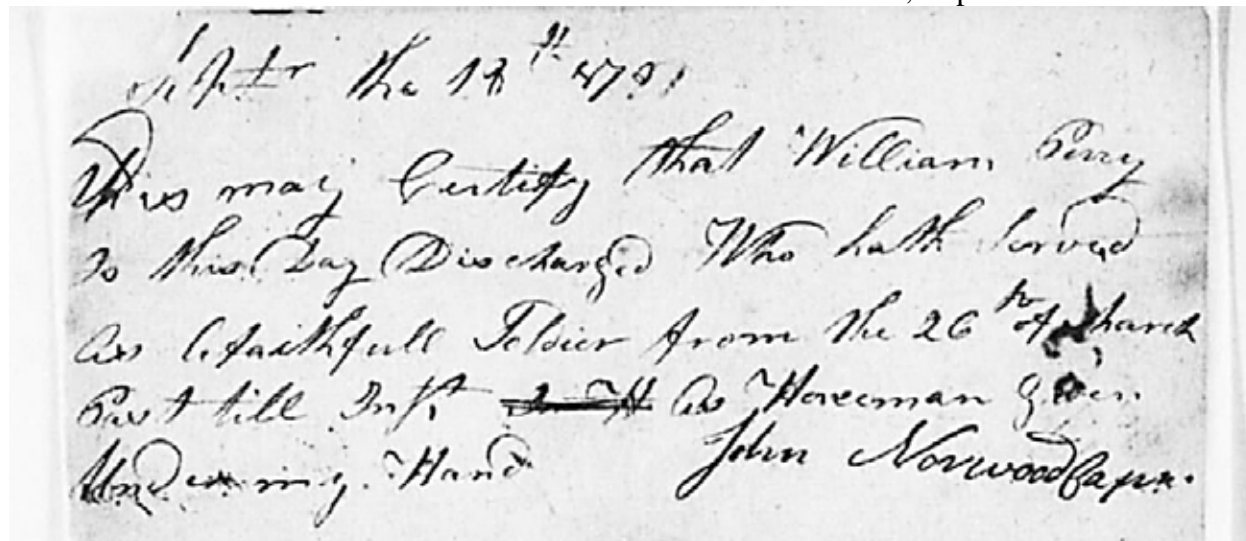 Septr the 18th 1781
This may Certify that William Perry
Is this Day Discharged Who hath Served
as A faithfull Soldier from the 26th of March
Past till Inst as Horseman given
Under my Hand John Norwood Capn.